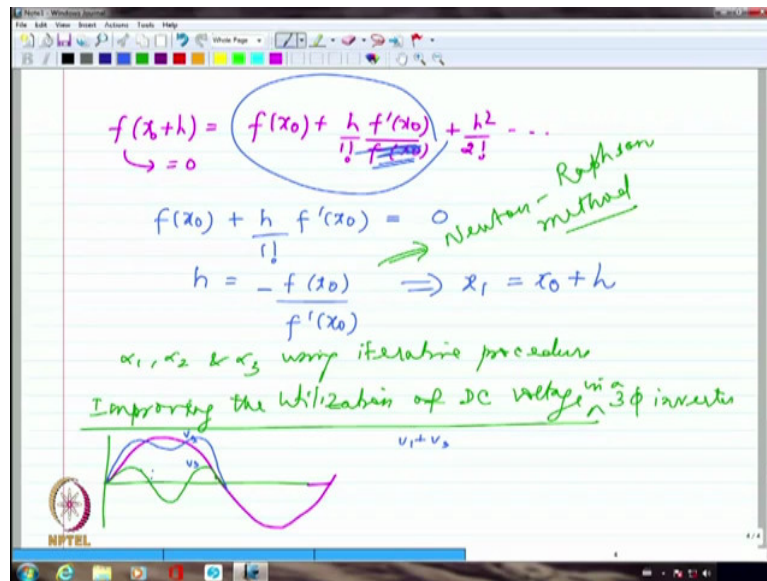 Note1 - Windows Journal
File Edit View Insert Actions Tools Help
Whole Page
B I
f(x₀+h) = f(x₀) + h/1! f'(x₀) + h²/2! ...
↳ = 0
f(x₀) + h/1! f'(x₀) = 0
⇒ Newton - Raphson method
h = - f(x₀)/f'(x₀) ⇒ x₁ = x₀ + h
α₁, α₂ & α₃ using iterative procedure
Improving the Utilization of DC voltage in a 3φ inverter
v₃
v₁ + v₃
NPTEL
4/4